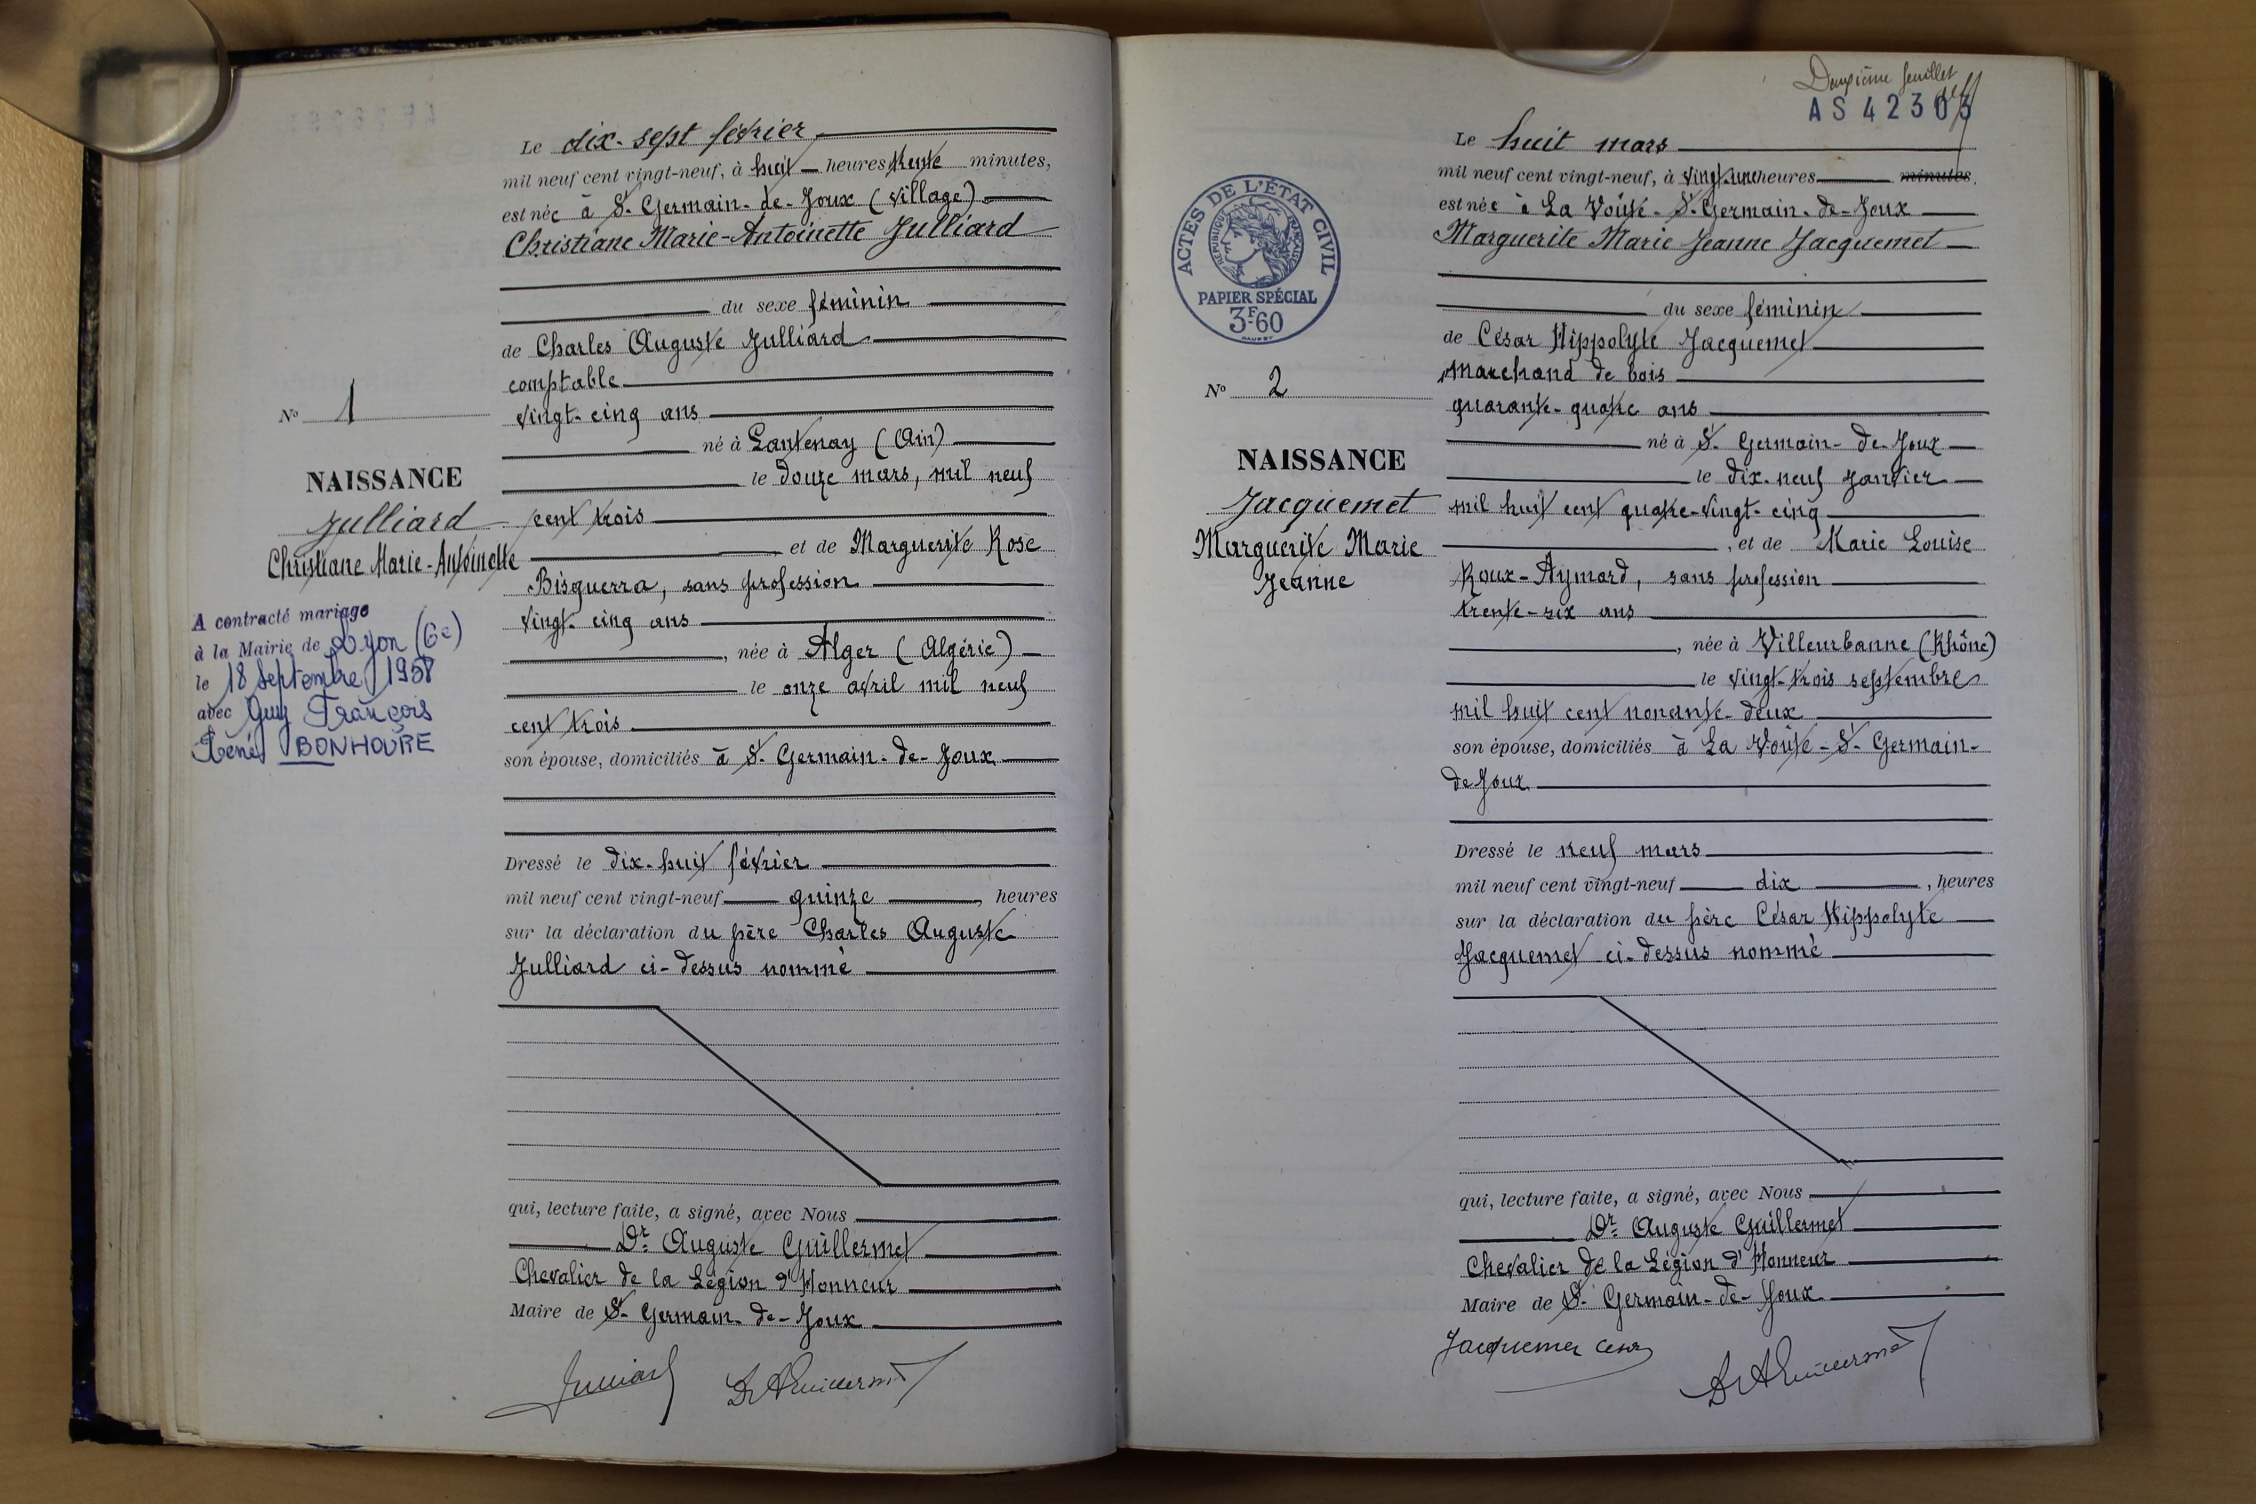 Le dix-sept février
mil neuf cent vingt-neuf, à huit heures trente minutes,
est née à St. Germain-de-Joux (village)
Christiane Marie-Antoinette Julliard
du sexe féminin
de Charles Auguste Julliard
comptable
vingt-cinq ans
né à Lantenay (Ain)
le douze mars, mil neuf
cent trois
et de Marguerite Rose
Bisguerra, sans profession
vingt-cinq ans
, née à Alger (Algérie)
le onze avril mil neuf
cent trois
son épouse, domiciliés à St. Germain-de-Joux
Dressé le dix-huit février
mil neuf cent vingt-neuf quinze, heures
sur la déclaration du père Charles Auguste
Julliard ci-dessus nommé
qui, lecture faite, a signé, avec Nous
Dr. Auguste Guillermet
Chevalier de la Légion d'Honneur
Maire de St. Germain-de-Joux
No 1
NAISSANCE
Julliard
Christiane Marie-Antoinette
A contracté mariage
à la Mairie de Lyon (6e)
le 18 Septembre 1958
avec Guy François
René BONHOURE
Julliard
Dr A Guillermet
Deuxième feuillet
AS 42303
Le huit mars
mil neuf cent vingt-neuf, à vingt-une heures minutes.
est née à La Voûte-St. Germain-de-Joux
Marguerite Marie Jeanne Jacquemet
du sexe féminin
de César Hippolyte Jacquemet
marchand de bois
quarante-quatre ans
né à St. Germain-de-Joux
le dix-neuf janvier
mil huit cent quatre-vingt-cinq
, et de Marie Louise
Roux-Aymard, sans profession
trente-six ans
, née à Villeurbanne (Rhône)
le vingt-trois septembre
mil huit cent nonante-deux
son épouse, domiciliés à La Voûte-St. Germain-
de Joux
Dressé le neuf mars
mil neuf cent vingt-neuf dix, heures
sur la déclaration du père César Hippolyte
Jacquemet ci-dessus nommé
qui, lecture faite, a signé, avec Nous
Dr. Auguste Guillermet
Chevalier de la Légion d'Honneur
Maire de St. Germain-de-Joux
ACTES DE L'ÉTAT CIVIL
RÉPUBLIQUE FRANÇAISE
PAPIER SPÉCIAL
3F60
No 2
NAISSANCE
Jacquemet
Marguerite Marie
Jeanne
Jacquemet César
Dr A Guillermet